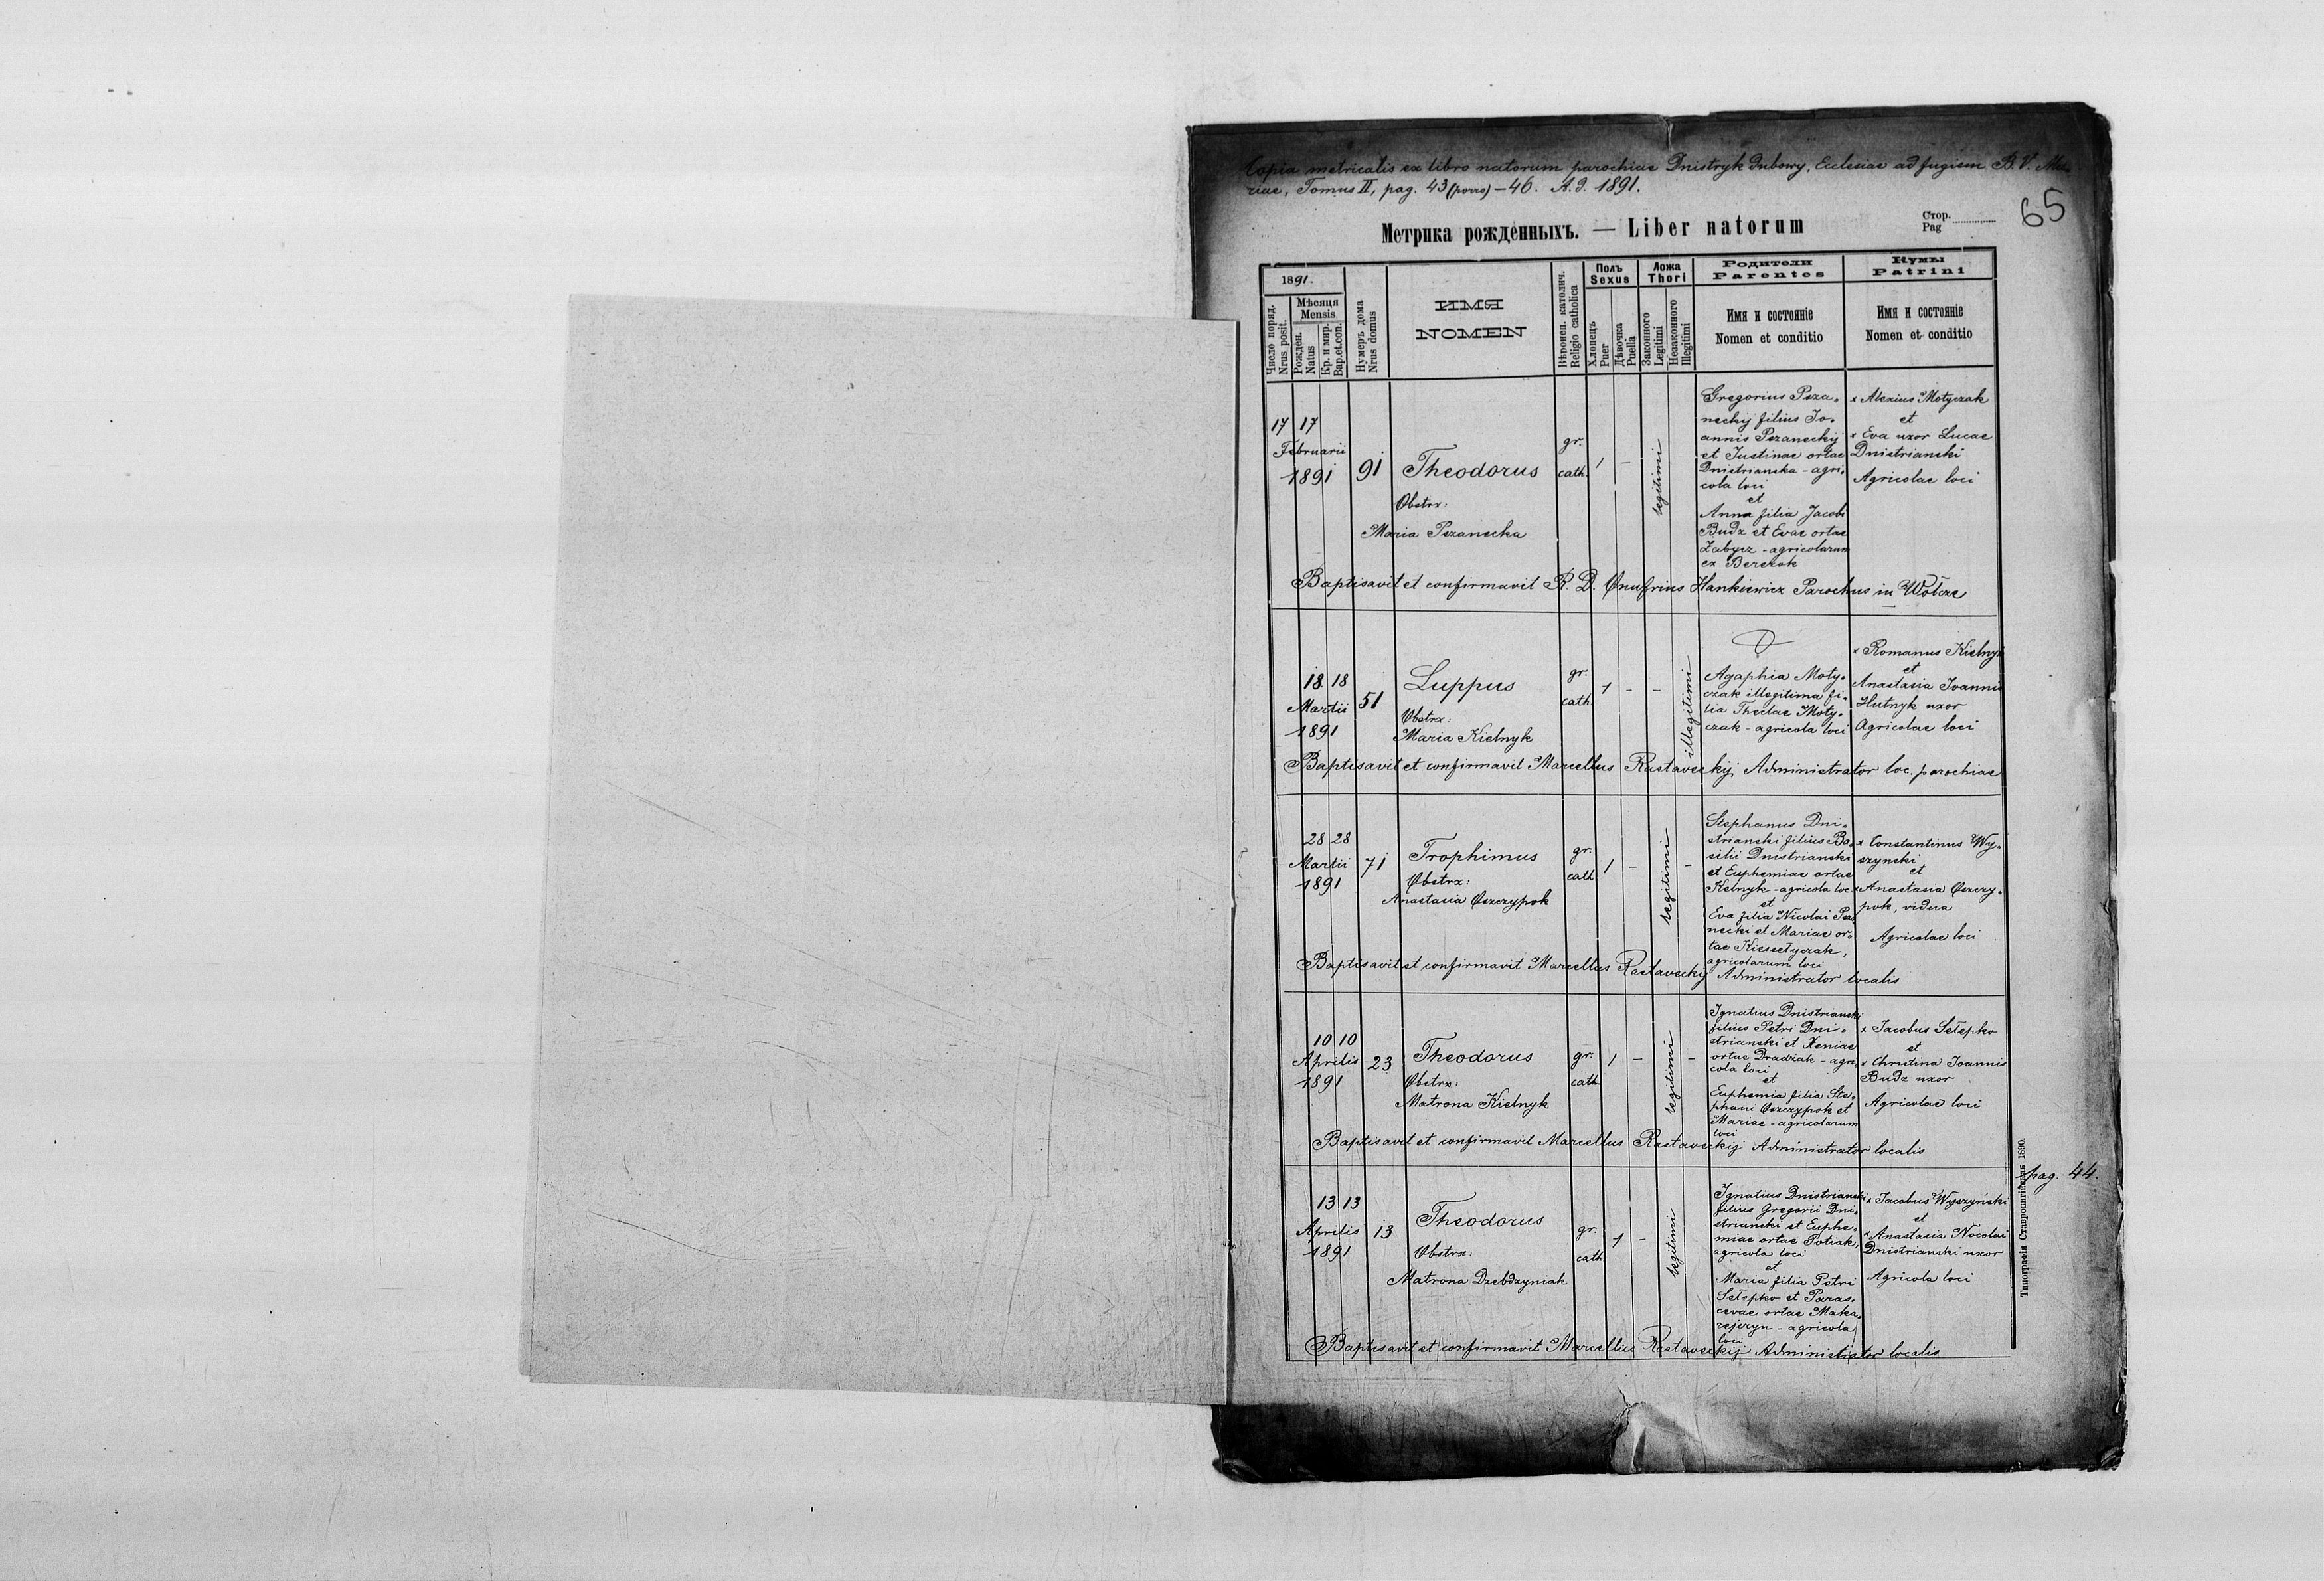 Copia metricalis ex libro natorum parochiae Dnistryk Dubowy, Ecclesiae ad fugiem B. V. Ma-
riae, Tomus II, pag. 43 (porro) — 46. A.D. 1891.
65
Метрика рожденныхъ. — Liber natorum
Стор.
Pag
1891.
Число поряд.
Nrus posit.
Мѣсяця
Mensis
Рожден.
Natus
Кр. и мир.
Bap.et.con.
Нумеръ дома
Nrus domus
ИМЯ
NOMEN
Вѣроисп. католич.
Religio catholica
Полъ
Sexus
Хлопецъ
Puer
Дѣвочка
Puella
Ложа
Thori
Законного
Legitimi
Незаконного
Illegitimi
Родители
Parentes
Имя и состояніе
Nomen et conditio
Кумы
Patrini
Имя и состояніе
Nomen et conditio
17 17
Februarii
1891
91
Theodorus
Obstrx:
Maria Pszanecka
gr.
cath.
1
–
legitimi
Gregorius Psza-
neckij filius Jo-
annis Pszaneckij
et Justinae ortae
Dnistrianska - agri-
cola loci
et
Anna filia Jacobi
Budz et Evae ortae
Zabycz - agricolarum
ex Berehok
x Alexius Motyczak
et
x Eva uxor Lucae
Dnistrianski
Agricolae loci
Baptisavit et confirmavit R. D. Onufrius Hankiewicz Parochus in Wołcze
18 18
Martii
1891
51
Luppus
Obstrx:
Maria Kielnyk
gr.
cath.
1
–
–
illegitimi
Agaphia Moty-
czak illegitima fi-
lia Theclae Moty-
czak - agricola loci
x Romanus Kielnyk
et
Anastasia Joannis
Hutnyk uxor
Agricolae loci
Baptisavit et confirmavit Marcellus Rastaveckij Administrator loc. parochiae
28 28
Martii
1891
71
Trophimus
Obstrx:
Anastasia Oszczypok
gr.
cath
1
–
legitimi
–
Stephanus Dni-
strianski filius Ba-
silii Dnistrianski
et Euphemiae ortae
Kielnyk - agricola loc.
et
Eva filia Nicolai Psza
necki et Mariae or-
tae Kiessełyczak,
agricolarum loci
x Constantinus Wy-
szynski
et
x Anastasia Oszczy-
pok, vidua
Agricolae loci
Baptisavit et confirmavit Marcellus Rastaveckij Administrator localis
10 10
Aprilis
1891
23
Theodorus
Obstrx:
Matrona Kielnyk
gr.
cath.
1
–
legitimi
–
Ignatius Dnistrianski
filius Petri Dni-
strianski et Xeniae
ortae Dradżak - agri-
cola loci
et
Euphemia filia Ste-
phani Oszczypok et
Mariae - agricolarum
loci
x Jacobus Sełepko
et
x Christina Joannis
Budz uxor
Agricolae loci
Baptisavit et confirmavit Marcellus Rastaveckij Administrator localis
pag. 44.
13 13
Aprilis
1891
13
Theodorus
Obstrx:
Matrona Dzebdzyniak
gr.
cath.
1
–
legitimi
Ignatius Dnistrianski
filius Gregorii Dni-
strianski et Euphe-
miae ortae Potiak,
agricola loci
et
Maria filia Petri
Sełepko et Paras-
cevae ortae Maka-
agricola
loci
x Jacobus Wyszyński
et
x Anastasia Nocolai
Dnistrianski uxor
Agricola loci
Baptisavit et confirmavit Marcellus Rastaveckij Administrator localis
Типографія Ставропигійская 1890.